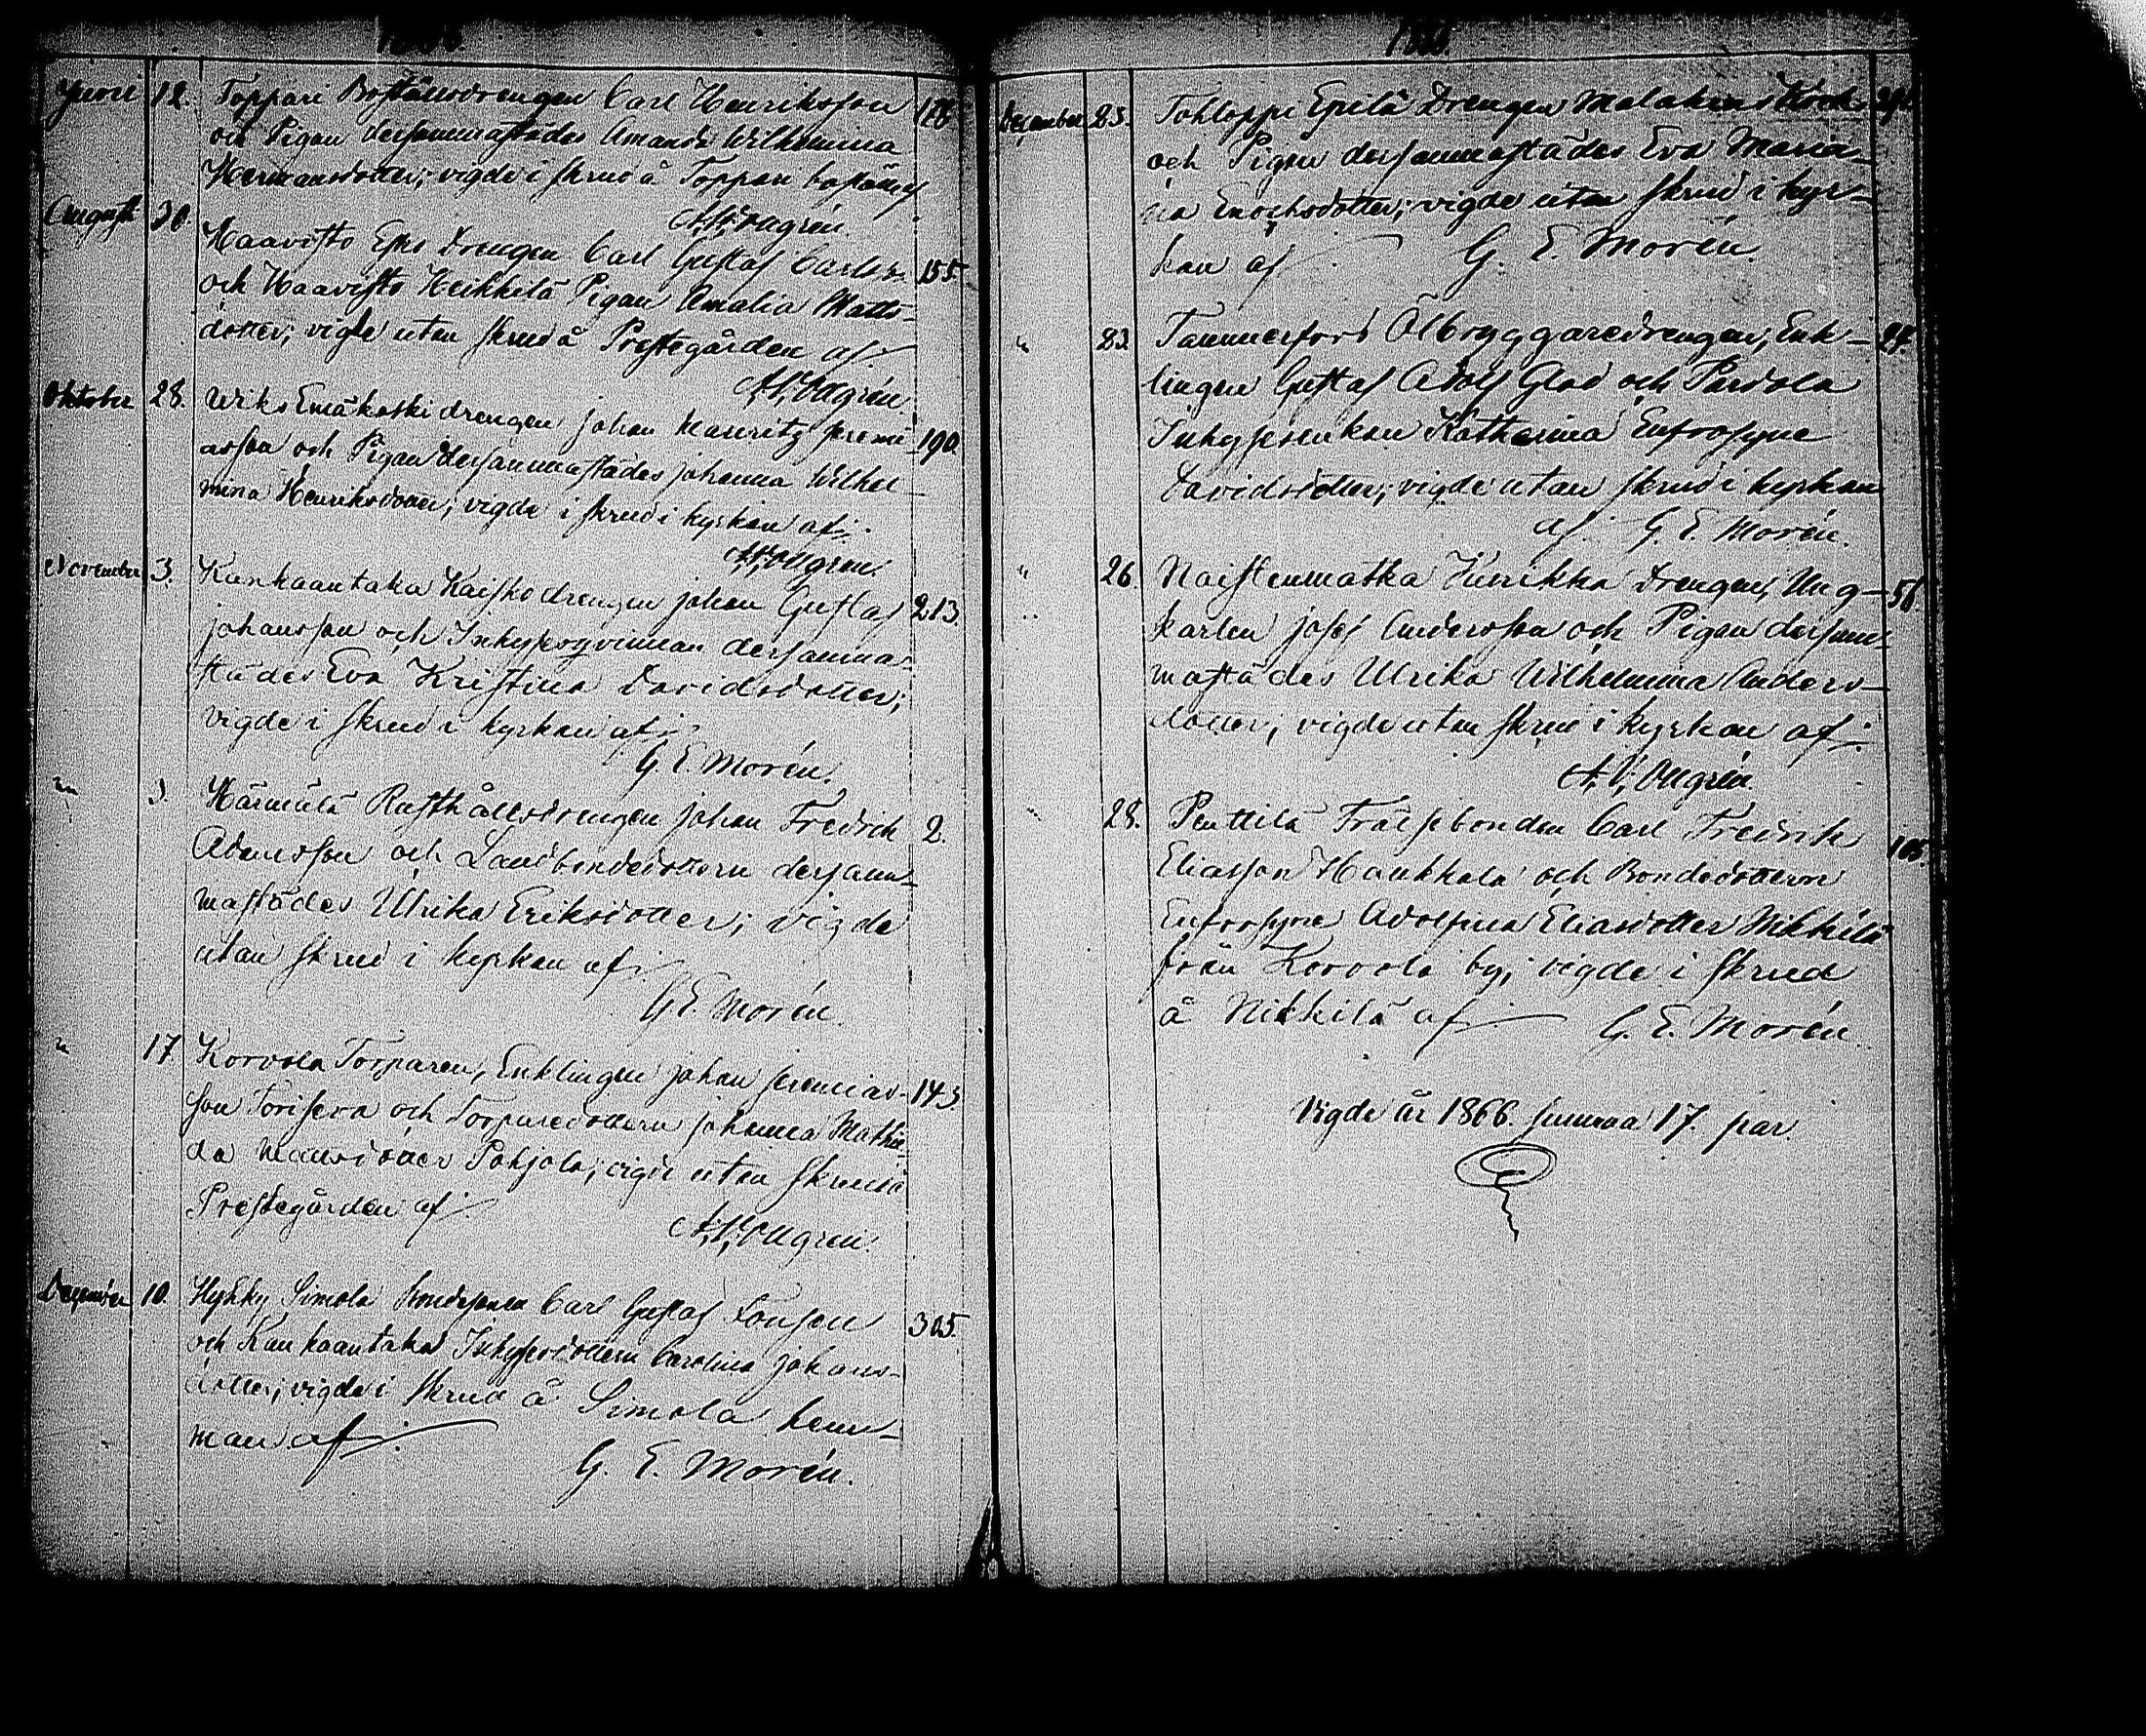 Juni 12. Toppari Boställsdrengen Carl Henriksson
och Pigan dersammastädes Amanda Wilhelmina
Hermansdotter; vigde i skrud å Toppari boställe af
A. V. Ollgrén.
Augusti 30. Haavisto Epu drengen Carl Gustaf Carlss. 155.
och Haavisto Heikkilä Pigan Amalia Matts-
dotter; vigde utan skrud å Prestegården af
A. V. Ollgrén.
Oktober 28. Emäkoski drengen Johan Mauritz Jeremi- 190.
asson och Pigan dersammastädes Johanna Wilhel-
mina Henriksdotter; vigde i skrud i kyrkan af:
A. V. Ollgrén.
November 3. Kankaantaka Kaisko drengen Johan Gustaf 213.
Johansson och Inhyseqvinnan dersamma-
städes Eva Kristina Davidsdotter;
vigde i skrud i kyrkan af:
G. E. Morén.
" 3. Härmälä Rusthållsdrengen Johan Fredrik 2.
Adamsson och Landbondedottern dersam-
mastädes Ulrika Eriksdotter; vigde
utan skrud i kyrkan af:
G. E. Morén.
" 17. Korvola Torparen, Enklingen Johan Jeremias- 143.
son och Torparedottern Johanna Mathil-
da Pohjola; vigde utan skrud å
Prestegården af:
A. V. Ollgrén.
December 10. Hyhky Simola Bondesonen Carl Gustaf 305.
och Kankaantaka Inhysesdottern Carolina Johans-
dotter; vigde i skrud å Simola hem-
man af:
G. E. Morén.
December 25. Tohloppi Epilä Drengen Malakias
och Pigan dersammastädes Eva Maria-
na Enochsdotter; vigde utan skrud i kyr-
kan af: G. E. Morén.
" 23. Tammerfors Ölbryggaredrengen, Enk-
lingen Gustaf Adolf Glad och Pardola
Inhysesenkan Katharina Eufrosyne
Davidsdotter; vigde utan skrud i kyrkan
af: G. E. Morén.
" 26. Naistenmatka Kurikka Drengen, Ung- 56.
karlen Josef Andersson och Pigan dersam-
mastädes Ulrika Wilhelmina Anders-
dotter; vigde utan skrud i kyrkan af:
A. V. Ollgrén.
" 28. Penttilä Frälsebonden Carl Fredrik
Eliasson Haukkala och Bondedottern
Eufrosyne Adolfina Eliasdotter Nikkilä
från Korvola by; vigde i skrud
å Nikkilä af: G. E. Morén.
Vigde år 1866. summa 17. par.